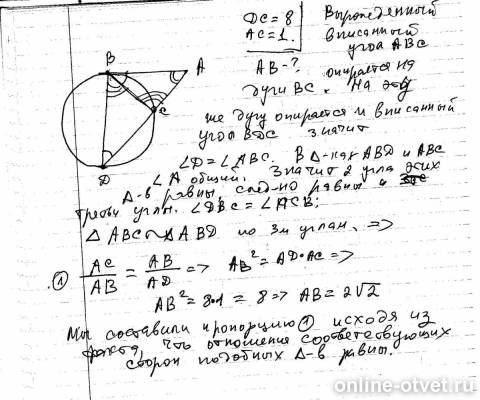 DC = 8
AC = 1.
AB - ?
Вырожденный
вписанный
угол ABC
опирается на
дугу BC. На эту
же дугу опирается и вписанный
угол BDC значит
∠D = ∠ABC. В Δ-ках ABD и ABC
∠A общий. Значит 2 угла этих
Δ-в равны, след-но равны и
третьи углы. ∠DBC = ∠ACB;
Δ ABC ~ Δ ABD по 3м углам. =>
① AC/AB = AB/AD => AB² = AD·AC =>
AB² = 8·1 = 8 => AB = 2√2
Мы составили пропорцию ① исходя из
факта, что отношения соответствующих
сторон подобных Δ-в равны.
B
A
C
D
online-otvet.ru